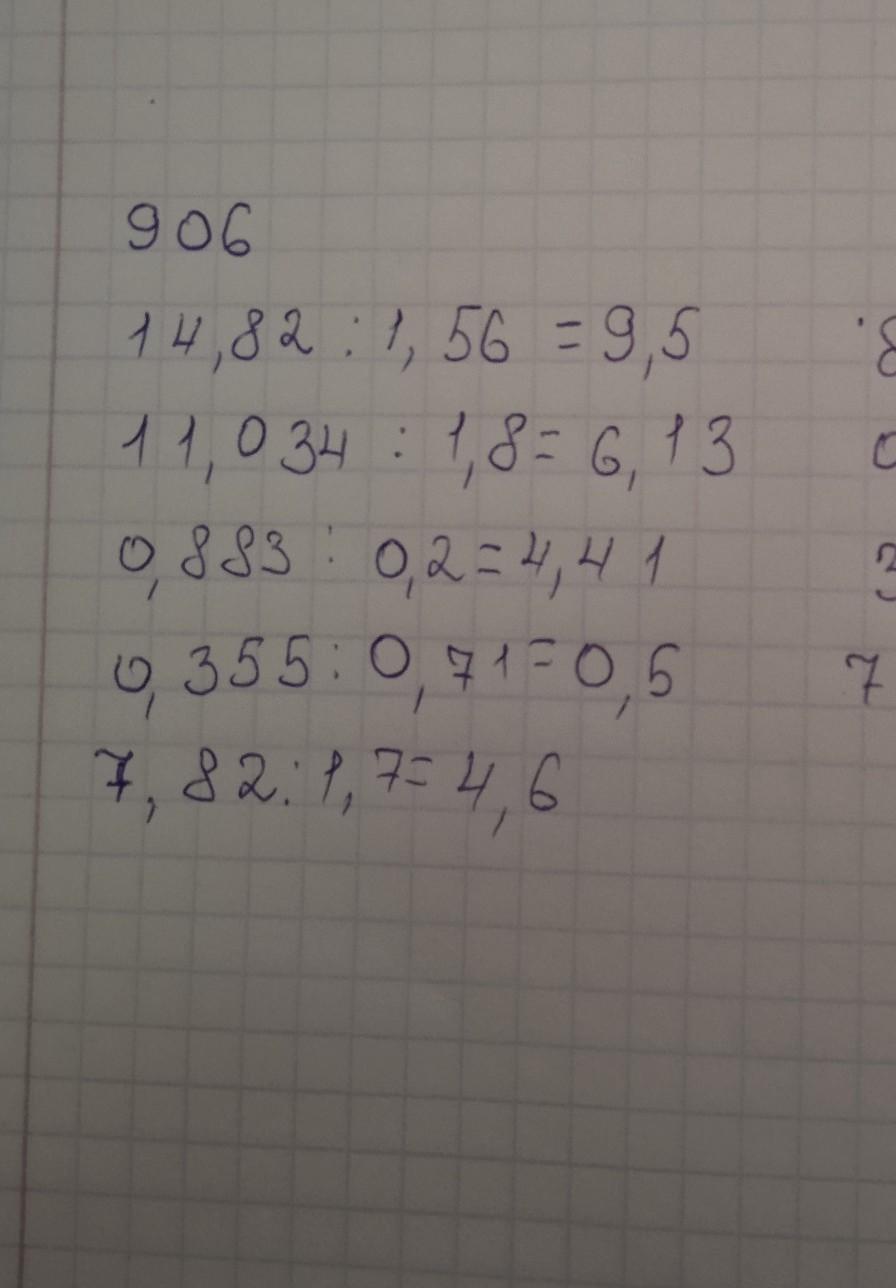 906
14,82 : 1,56 = 9,5
11,034 : 1,8 = 6,13
0,883 : 0,2 = 4,41
0,355 : 0,71 = 0,5
7,82 : 1,7 = 4,6
7